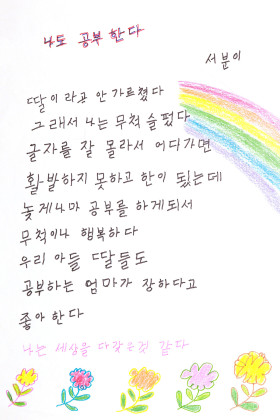 나도 공부 한다
서분이
딸이 라고 안 가르쳤다
그래서 나는 무척 슬펐다
글자를 잘 몰라서 어디가면
활발하지 못하고 한이 됬는데
늦게나마 공부를 하게되서
무척이나 행복하다
우리 아들 딸들도
공부하는 엄마가 장하다고
좋아 한다
나는 세상을 다갖은것 같다